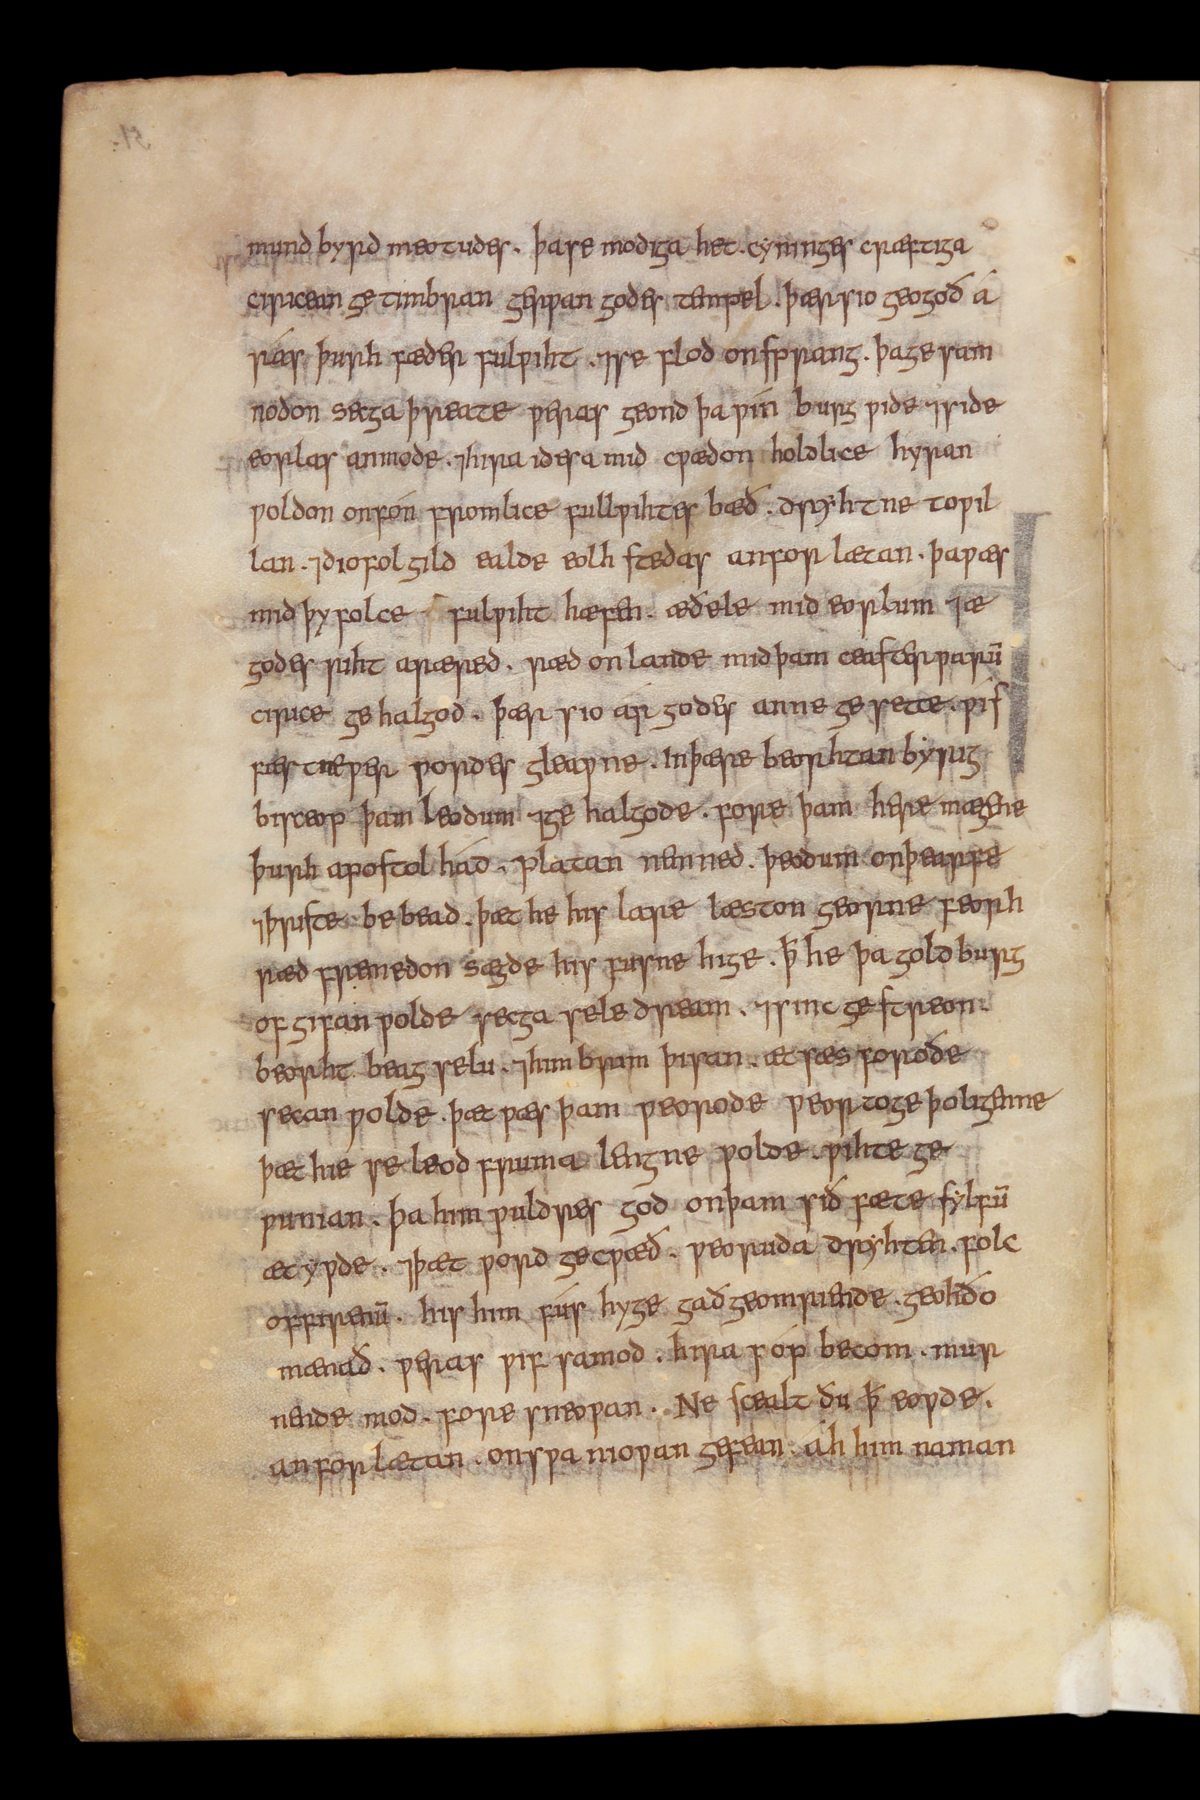 mund byrd meotudes. þa se modiga het. cyninges cræftiga
ciricean getimbran gerƿan godes tempel. þær sio geogoð á
rás þurh fæder fulƿiht. ⁊se flod onsprang. þa gesam
nodon secga þreate ƿeras geond þa ƿin burg ƿide ⁊side
eorlas anmode. ⁊hira idesa mid cƿædon holdlice hyran
ƿoldon onfón fromlice fullƿihtes bæð. dryhtne to ƿil
lan. ⁊diofolgild ealde eolhstedas anforlætan. þa ƿæs
mid þy folce fulƿiht hæfen. æðele mid eorlum ⁊æ
godes riht aræred. ræd on lande mid þam ceasterƿarū
cirice gehalgod. þær sio ár godes anne gesette. ƿis
fæstne ƿer ƿordes gleaƿne. In þære beorhtan byrig
bisceop þam leodum ⁊gehalgode. fore þam heremægene
þurh apostolhád. platan nemned. þeodum onþearfe
⁊þriste bebead. þæt hie his lare læston georne feorh
ræd fremedon sægde his fusne hige. þ̄ he þa goldburg
ofgifan ƿolde secga seledream. ⁊sinc gestreon
beorht beagselu. ⁊him brim þisan. æt sæs foroðe
secan ƿolde. þæt ƿæs þam ƿeorode ƿeor to geþoligenne
þæt hie se leodfruma leng ne ƿolde. ƿihte ge
ƿunian. þa him ƿuldres god onþam siðfæte sylfū
ætyƿde. ⁊þæt ƿord gecƿæð. ƿeoruda dryhten. folc
offirenū. his him fús hyge gað geomriende. geohðo
mænað. ƿeras ƿif samod. hira ƿóp becom. mur
nende mod. fore sneoƿan. Ne scealt ðu þ̄ eoƿde.
anforlætan. onsƿa nioƿan gefean. áh him naman